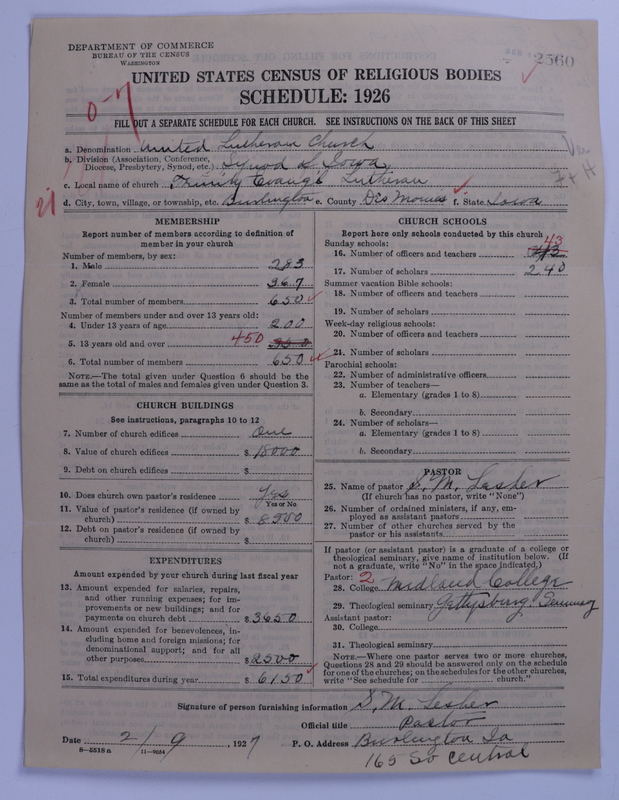 DEPARTMENT OF COMMERCE
BUREAU OF THE CENSUS
WASHINGTON
2560
UNITED STATES CENSUS OF RELIGIOUS BODIES
SCHEDULE: 1926
0-7
FILL OUT A SEPARATE SCHEDULE FOR EACH CHURCH. SEE INSTRUCTIONS ON THE BACK OF THIS SHEET
a. Denomination United Lutheran Church
b. Division (Association, Conference, Diocese, Presbytery, Synod, etc.) Synod of Iowa
c. Local name of church Trinity Evangl. Lutheran
d. City, town, village, or township, etc. Burlington e. County Des Moines f. State Iowa
MEMBERSHIP
Report number of members according to definition of
member in your church
Number of members, by sex:
1. Male 283
2. Female 367
3. Total number of members 650
Number of members under and over 13 years old:
4. Under 13 years of age 200
5. 13 years old and over 450
6. Total number of members 650
NOTE.—The total given under Question 6 should be the
same as the total of males and females given under Question 3.
CHURCH BUILDINGS
See instructions, paragraphs 10 to 12
7. Number of church edifices One
8. Value of church edifices $ 18000
9. Debt on church edifices $
10. Does church own pastor's residence Yes
Yes or No
11. Value of pastor's residence (if owned by
church) $ 8500
12. Debt on pastor's residence (if owned by
church) $
EXPENDITURES
Amount expended by your church during last fiscal year
13. Amount expended for salaries, repairs,
and other running expenses; for im-
provements or new buildings; and for
payments on church debt $ 3650
14. Amount expended for benevolences, in-
cluding home and foreign missions; for
denominational support; and for all
other purposes $ 2500
15. Total expenditures during year $ 6150
CHURCH SCHOOLS
Report here only schools conducted by this church
Sunday schools: 43
16. Number of officers and teachers
17. Number of scholars 240
Summer vacation Bible schools:
18. Number of officers and teachers
19. Number of scholars
Week-day religious schools:
20. Number of officers and teachers
21. Number of scholars
Parochial schools:
22. Number of administrative officers
23. Number of teachers—
a. Elementary (grades 1 to 8)
b. Secondary
24. Number of scholars—
a. Elementary (grades 1 to 8)
b. Secondary
PASTOR
25. Name of pastor S. M. Lesher
(If church has no pastor, write "None")
26. Number of ordained ministers, if any, em-
ployed as assistant pastors
27. Number of other churches served by the
pastor or his assistants
If pastor (or assistant pastor) is a graduate of a college or
theological seminary, give name of institution below. (If
not a graduate, write "No" in the space indicated.)
Pastor: 2
28. College Midland College
29. Theological seminary Gettysburg Seminary
Assistant pastor:
30. College
31. Theological seminary
NOTE.—Where one pastor serves two or more churches,
Questions 28 and 29 should be answered only on the schedule
for one of the churches; on the schedules for the other churches,
write "See schedule for church."
Signature of person furnishing information S. M. Lesher
Official title Pastor
Date 2/9, 1927 P. O. Address Burlington Ia
165 So Central
8-5518a 11-9684